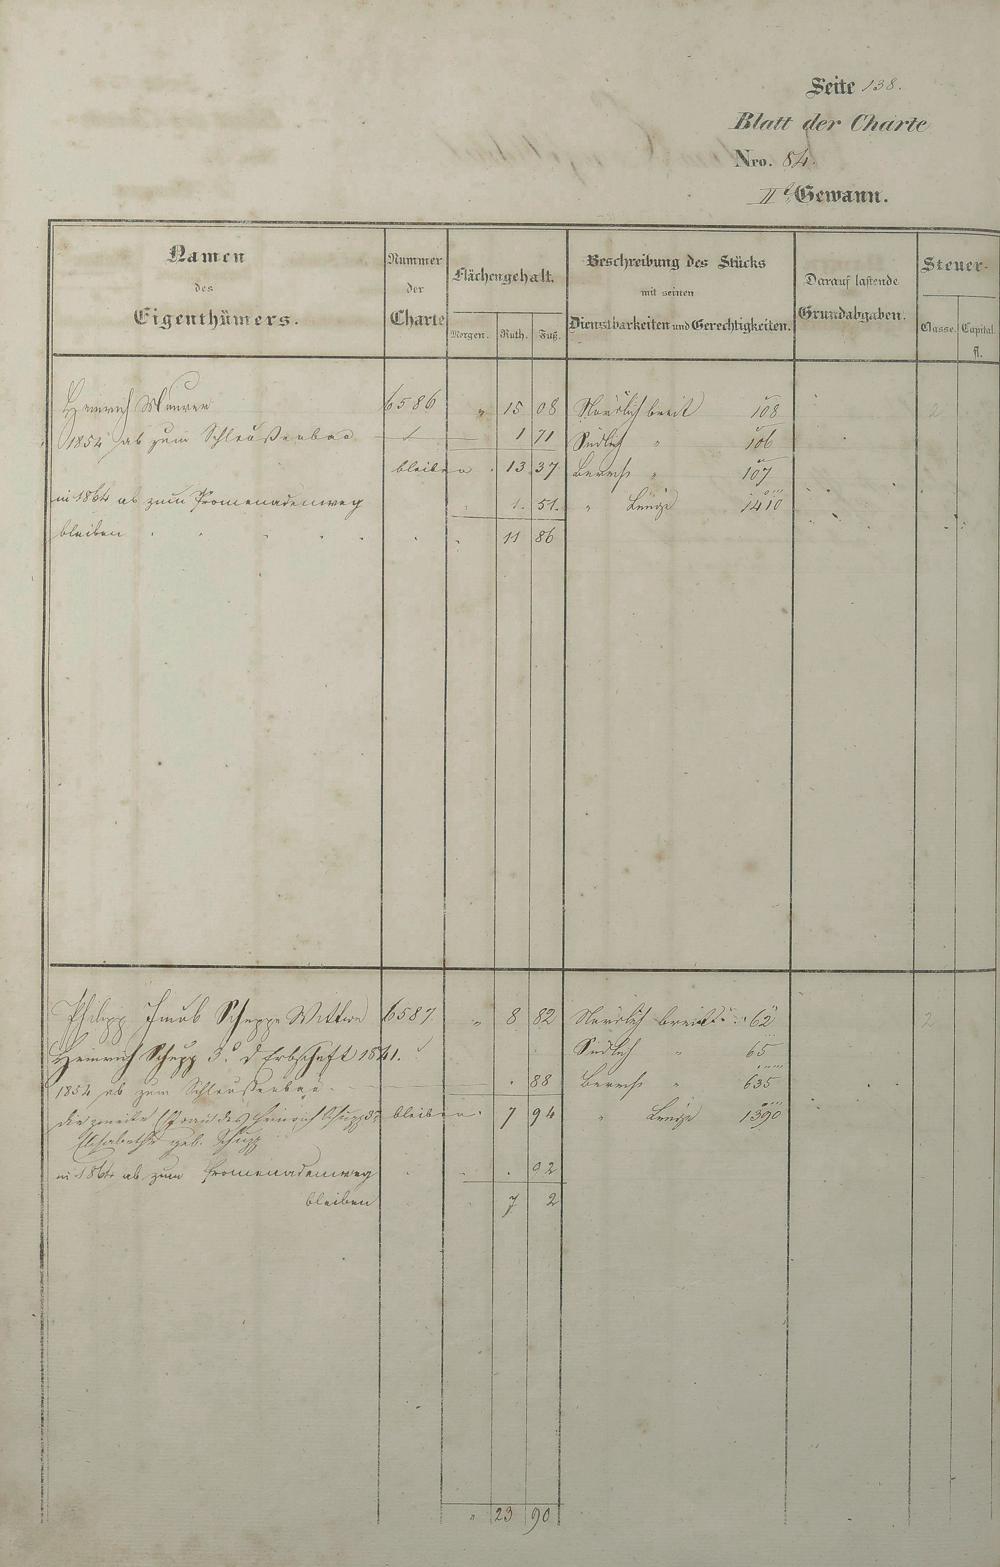 Seite 138.
Blatt der Charte
Nro. 84.
IIte Gewann.
Namen des Eigenthümers.
Nummer der Charte
Flächengehalt.
Morgen. Ruth. Fuß.
Beschreibung des Stücks mit seinen Dienstbarkeiten und Gerechtigkeiten.
Darauf lastende Grundabgaben.
Steuer-
Classe. Capital. fl.
Heinrich Maurer 6586 " 15 08 Nördlich breit 108 2
1854 ab zum Schleußenbau 1 71 Südlich " 106
bleiben 13 37 Berech " 107
in 1864 ab zum Promenadenweg 1. 51. " Länge 1410
bleiben 11 86
Philipp Jacob Schupp Wittwe 6587 " 8 82 Nördlich breit 62 2
Heinrich Schupp 3. d Erbschaft 1841. Südlich " 65
1854 ab zum Schleußenbau 88 Berech " 635
die zweite Ehefrau des Heinrich Schupp 3. bleiben 7 94 " Länge 1390
Elisabetha geb. Schupp
in 1864 ab zum Promenadenweg . 92
bleiben 7 2
" 23 90